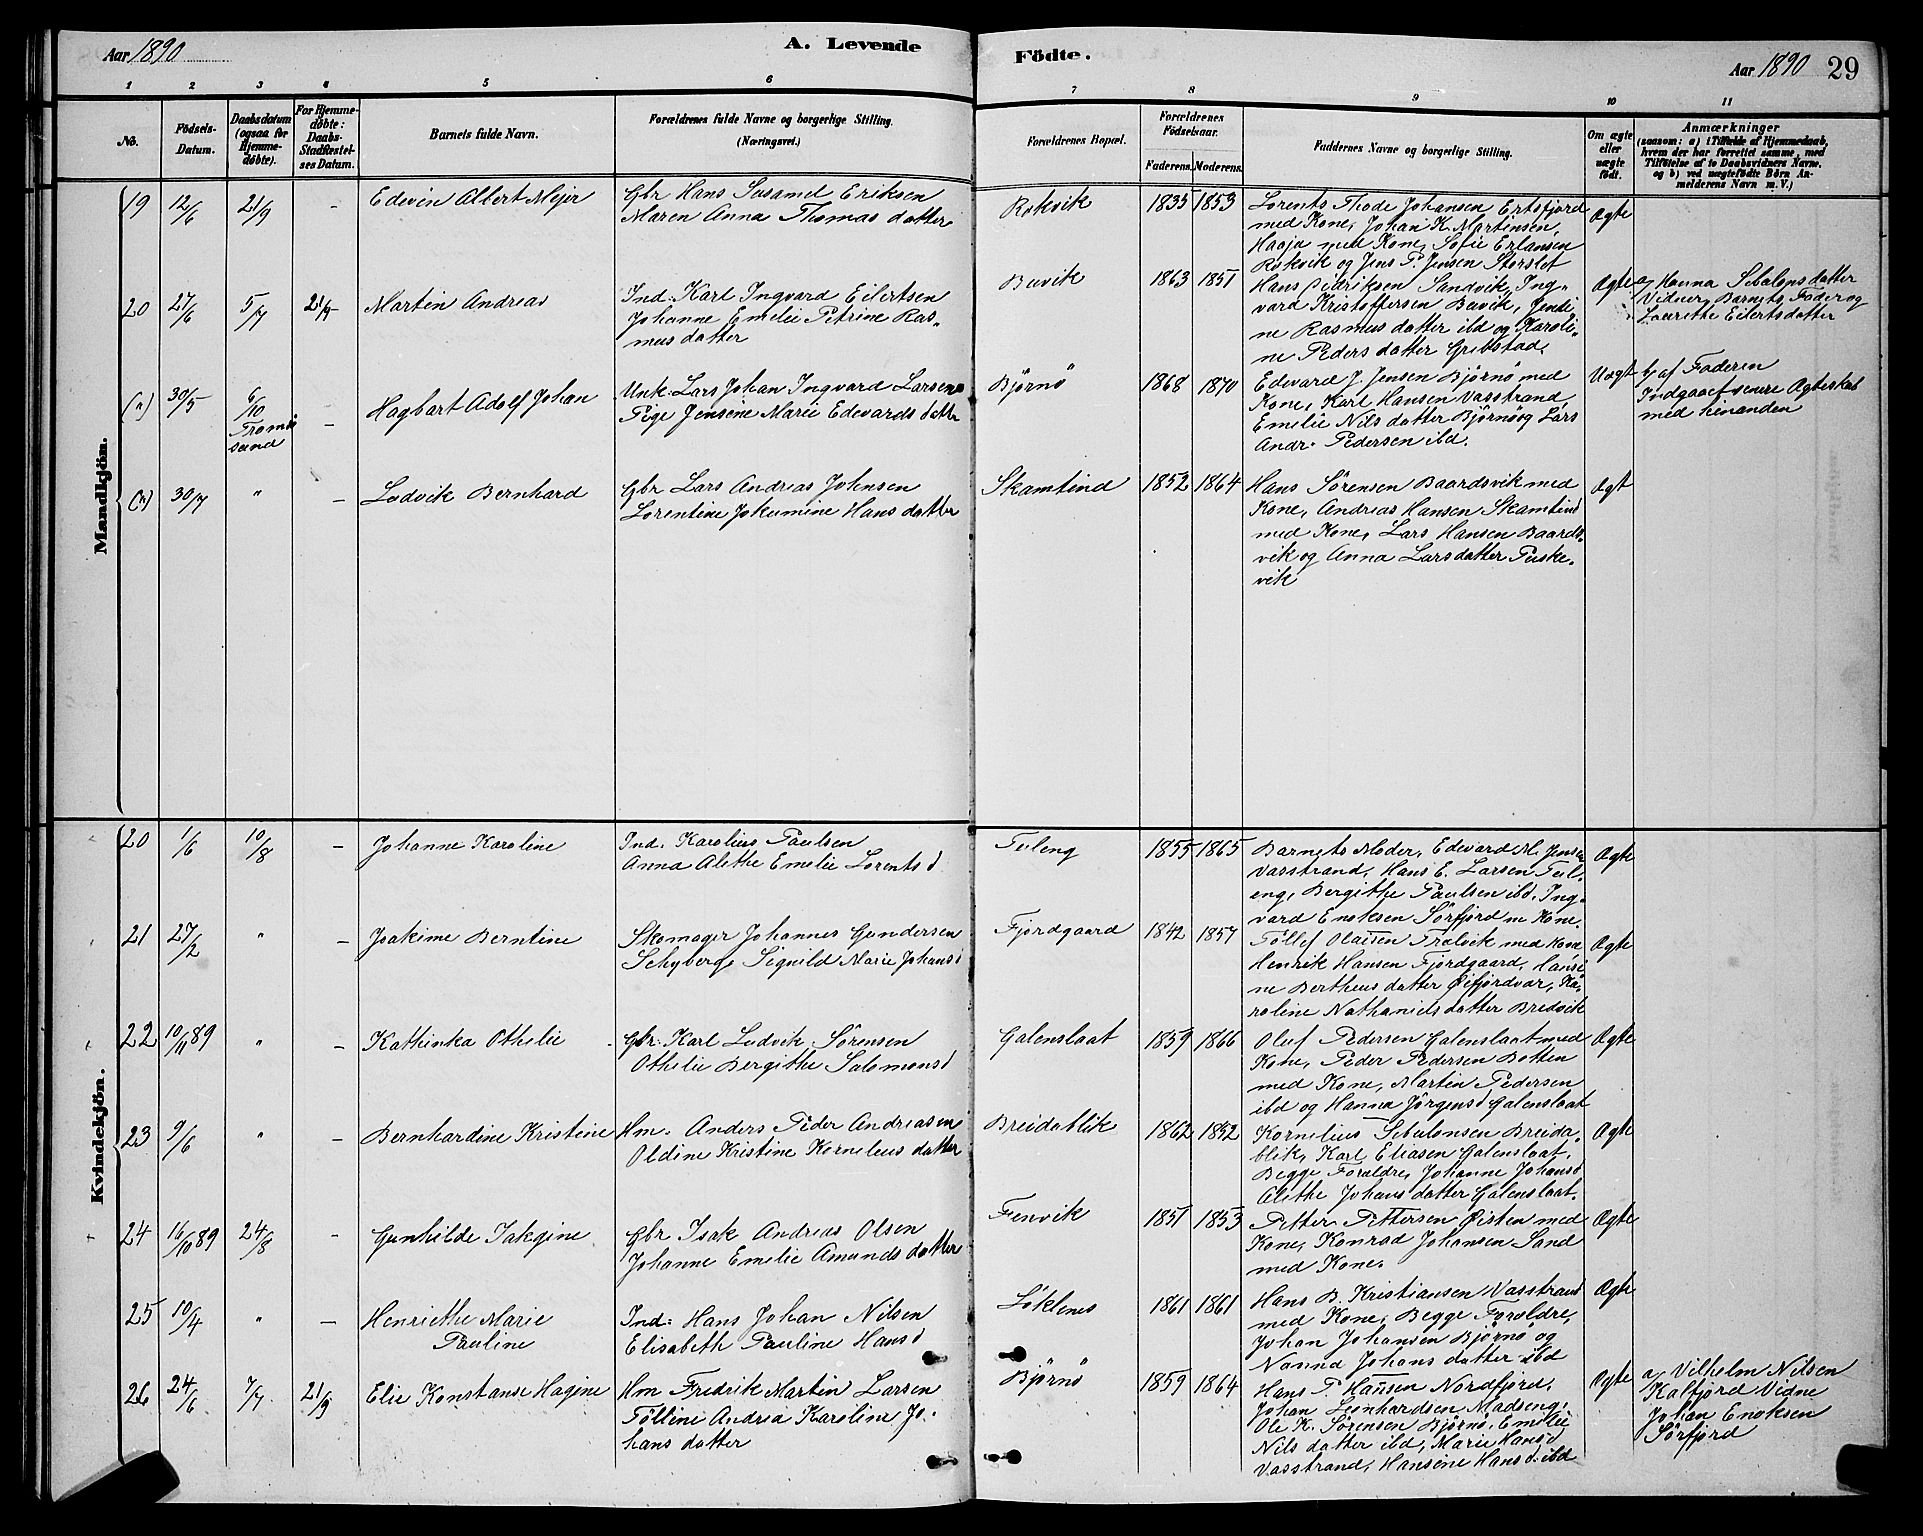 Aar 1890
A. Levende
Födte.
Aar 1890 29
1 2 3 4 5 6 7 8 9 10 11
No.
Födsels-Datum.
Daabsdatum (ogsaa for Hjemmedøbte).
For Hjemmedøbte: Daabs-Stadfæstelses Datum.
Barnets fulde Navn.
Forældrenes fulde Navne og borgerlige Stilling. (Næringsvei.)
Forældrenes Bopæl.
Forældrenes Fødselsaar.
Faderens. Moderens.
Faddernes Navne og borgerlige Stilling.
Om ægte eller uægte født.
Anmærkninger
(saasom: a) i Tilfælde af Hjemmedaab, hvem der har forrettet samme, med Tilføielse af to Daabsvidners Navne, og b) ved uægtefødte Børn Anmelderens Navn m. V.)
Mandkjön.
19 12/6 21/9 - Edevin Albert Mejer
Gbr Hans Susamel Eriksen
Maren Anna Thomas datter
Rekvik 1835 1853
Lorents Thode Johansen Ertsfjord
med Kone, Johan K. Martinsen,
Haaja med Kone, Sofie Erlansen
Rekvik og Jens P. Jensen Storslet
Ægte
20 27/6 5/7 21/9 Martin Andreas
Ind. Karl Ingvard Eilertsen
Johanne Emelie Petrine Ras-
mus datter
Buvik 1863 1851
Hans Didriksen Sandvik, Ing-
vard Kristoffersen Buvik, Jensi-
ne Rasmus datter ibd og Karoli-
ne Peders datter Grebstad.
Ægte
a, Hanna Sebulons datter
Vidner, Barnets Fader og
Laurethe Eilertsdatter
(") 30/5 6/10 Tromsø sund - Hagbart Adolf Johan
Unk. Lars Johan Ingvard Larsen
Pige Jensine Marie Edevards datter
Bjørnø 1868 1870
Edevard J. Jensen Bjørnø med
Kone, Karl Hansen Vasstrand
Emelie Nils datter Bjørnø og Lars
Andr. Pedersen ibd.
Uægt
b, af Faderen
Indgaaet senere Ægteskab
med hinanden
(") 30/7 " - Ludvik Bernhard
Gbr Lars Andreas Johnsen
Lorentine Jokumine Hans datter
Skamtind 1852 1864
Hans Sörensen Baardsvik med
Kone, Andreas Hansen Skamtind
med Kone, Lars Hansen Baards-
vik og Anna Lars datter Fiske-
vik
Ægt
Kvindekjön.
20 1/6 10/8 - Johanne Karoline
Ind. Karolius Paulsen
Anna Alethe Emelie Lorents d
Tuleng 1855 1865
Barnets Moder, Edevard M. Jensen
Vasstrand, Hans E. Larsen Tul-
eng, Bergithe Paulsen ibd. Ing-
vard Enoksen Sörfjord m Kone.
Ægte
21 27/2 " - Joakime Berntine
Skomager Johannes Gundersen
Schyberg, Siguild Marie Johans d
Fjordgaard 1842 1857
Töllef Olaisen Trælvik med Kone
Henrik Hansen Fjordgaard, Hansi-
ne Bertheus datter Øifjordvær, Ka-
roline Nathaniels datter Bredvik
Ægte
22 10/11 89 " - Kathinka Othelie
Gbr. Karl Ludvik Sörensen
Othelie Bergithe Salomons d
Galenslaat 1859 1866
Oluf Pedersen Galenslaat med
Kone, Peder Pedersen Botten
med Kone, Martin Pedersen
ibd og Hanna Jörgens d Galenslaat
Ægte
23 9/6 " - Bernhardine Kristine
Hm. Anders Peder Andreasen
Oldine Kristine Kornelius datter
Breidablik 1862 1852
Kornelius Sebulonsen Breida-
blik, Karl Eliasen Galenslaat,
Begge Forældre, Johanne Johans d
Alethe Johans datter Galenslaat.
Ægte
24 16/10 89 24/8 - Gunhilde Jakgine
Gbr Isak Andreas Olsen
Johanne Emelie Amunds datter
Finvik 1851 1853
Petter Pettersen Øisten med
Kone, Konrad Johansen Sand
med Kone.
Ægte
25 10/4 " - Henriethe Marie
Pauline
Ind: Hans Johan Nilsen
Elisabeth Pauline Hans d
Löklenes 1861 1861
Hans B. Kristiansen Vasstrand
med Kone, Begge Forældre,
Johan Johansen Bjørnø og
Nanna Johans datter ibd
Ægte
26 24/6 7/7 21/9 Elie Konstanse Hagine
Hm Fredrik Martin Larsen
Tölline Andrea Karoline Jo-
hans datter
Bjørnø 1859 1864
Hans P. Hansen Nordfjord.
Johan Leonhardsen Madseng,
Ole K. Sörensen Bjørnø, Emelie
Nils datter ibd, Marie Hans d
Vasstrand, Hansine Hans d. ibd
Ægte
a, Vilhelm Nilsen
Kalfjord Vidne
Johan Enoksen
Sörfjord